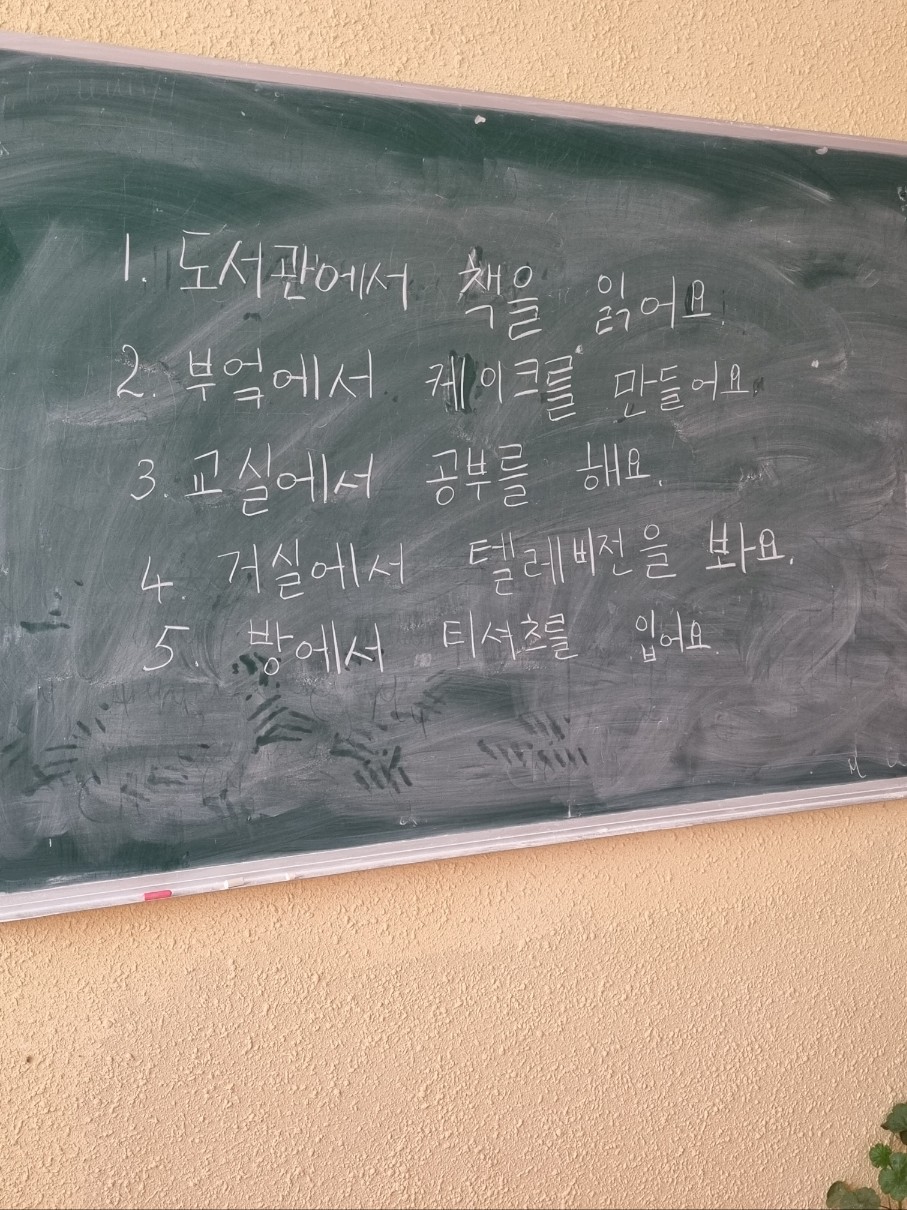 1. 도서관에서 책을 읽어요.
2. 부엌에서 케이크를 만들어요.
3. 교실에서 공부를 해요.
4. 거실에서 텔레비전을 봐요.
5. 방에서 티셔츠를 입어요.